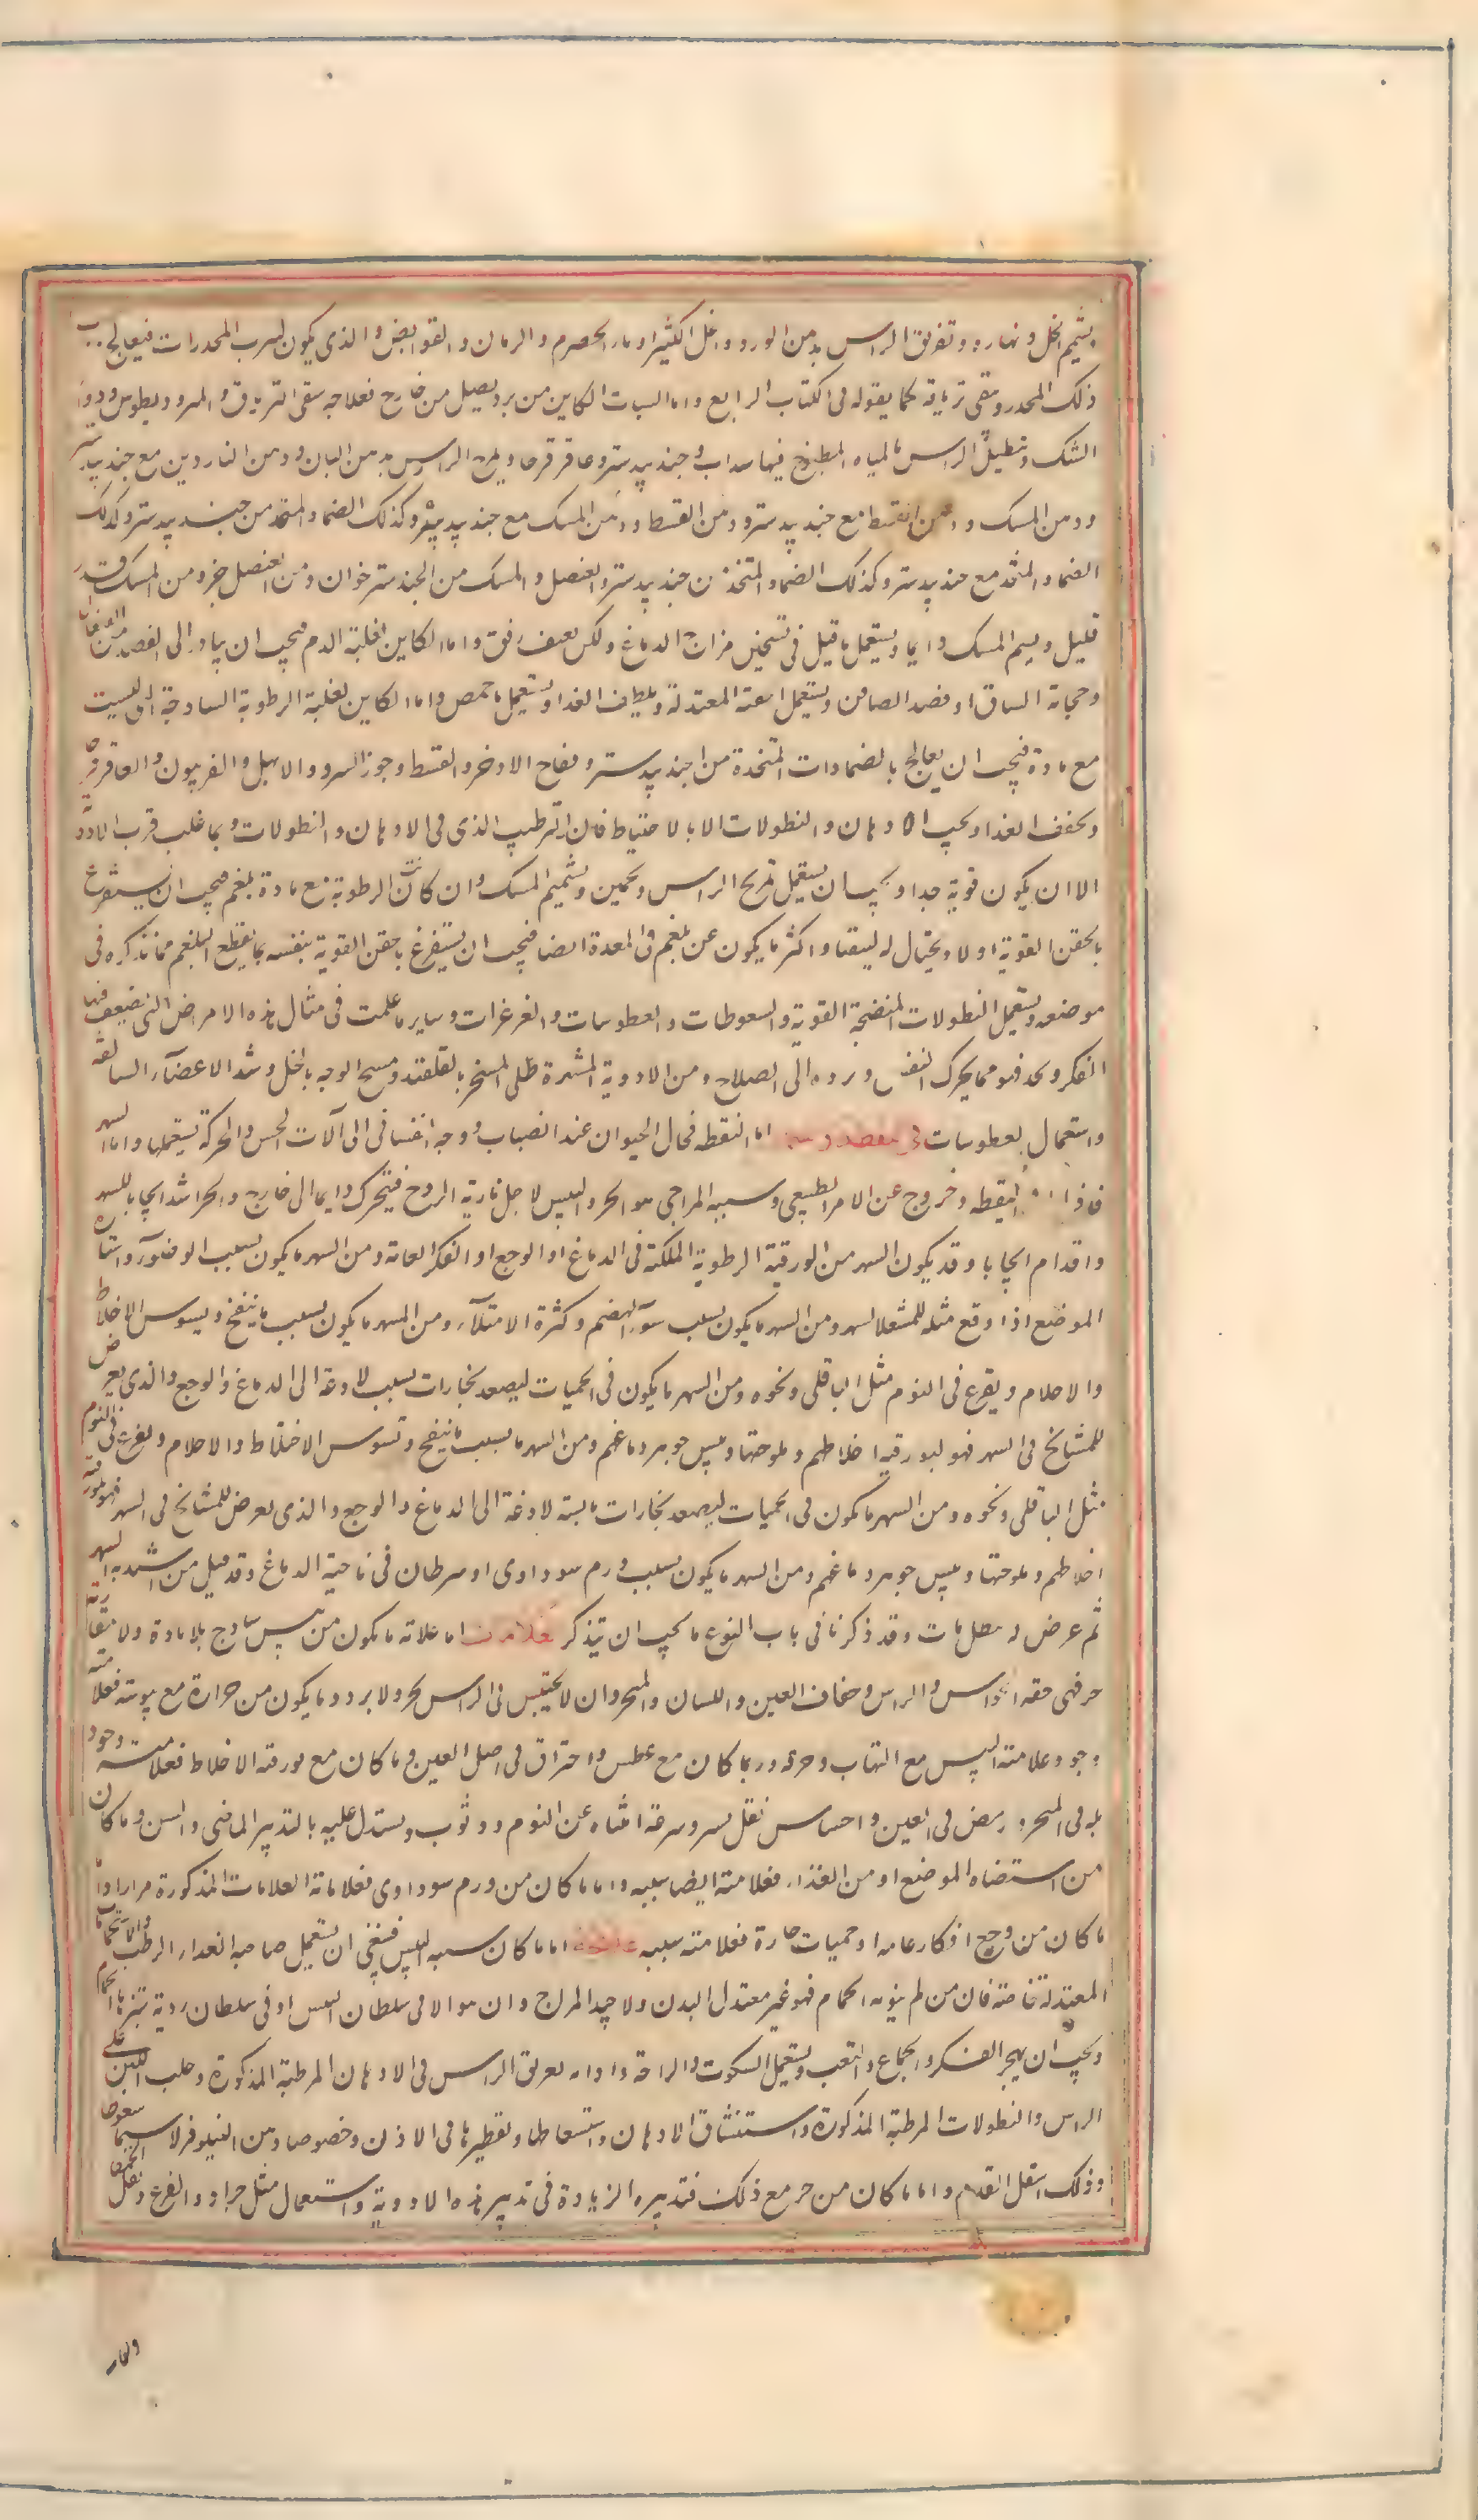 بشميم الخل و نهاره و تغريق الراس بدهن الورد و الخل الكثير او ماء الحصرم و الرمان و القوابض و الذى يكون لشرب المخدرات فيعالج بحسب
ذلك المخدر و يسقى ترياقه كما يقوله فى الكتاب الرابع و اما السبات الكاين من برد يصل من خارج فعلاجه سقى الترياق و المثروديطوس و دواء
المسك و تنطيل الراس بالمياه المطبوخ فيها سداب و جندبيدستر و عاقرقرحا و يمرخ الراس بدهن البان و دهن الناردين مع جندبيدستر
و دهن المسك و دهن القسط مع جندبيدستر و دهن القسط و دهن المسك مع جندبيدستر و كذلك الضماد المتخذ من جندبيدستر و كذلك
الضماد المتخذ مع جندبيدستر و كذلك الضماد المتخذ من جندبيدستر و العنصل و المسك من الجندبيدستر جزوان و من العنصل جزو من المسك قدر
قليل و يشم المسك دايما و يستعمل ما قيل فى تسخين مزاج الدماغ و لكن بعنف رفق و اما الكاين لغلبة الدم فيجب ان يبادر الى الفصد من القيفال
و حجامة الساق او فصد الصافن و يستعمل الحقنة المعتدلة و يلطف الغذا و يستعمل ماء حمص و اما الكاين لغلبة الرطوبة الساذجة التى ليست
مع مادة فيجب ان يعالج بالضمادات المتخذة من الجندبيدستر و فقاح الاذخر و القسط و جوز السرو و الابهل و الفربيون و العاقرقرحا
و يخفف الغذا و يجب الادهان و النطولات الا بالاحتياط فان الترطيب الذى فى الادهان و النطولات ربما غلب قرب الادوية
الا ان يكون قوية جدا و يجب ان يستعمل تمريخ الراس و تخمين و تشميم المسك و ان كانت الرطوبة مع مادة بلغم فيجب ان يستفرغ
بالحقن القوية اولا و يحتال له ليتقيا و اكثر ما يكون عن بلغم فى المعدة ايضا فيجب ان يستفرغ بالحقن القوية بنفسه بما يقطع البلغم مما نذكره فى
موضعه و يستعمل النطولات المنضجة القوية و السعوطات و العطوسات و الغرغرات و ساير ما علمت فى مثال هذه الامراض التى يضعف فيها
الفكر و يحد فهو مما يحرك النفس و يرده الى الصلاح و من الادوية المشهرة طلى المنخر بالقلقند و مسح الوجه بالخل و شد الاعضآء السافلة
و استعمال العطوسات فى اليقظة و السهر اما اليقظه فحال الحيوان عند انصباب روحه النفسانى الى آلات الحس و الحركة يستعملها و اما السهر
فافراط اليقظه و خروج عن الامر الطبيعى و سببه المزاجى هو الحر و اليبس لاجل نارية الروح فيتحرك دايما الى خارج و الحر اشد ايجابا للسهر
و اقدام ايجابا و قد يكون السهر من بورقية الرطوبة المكتنة فى الدماغ او الوجع او الفكر العامة و من السهر ما يكون بسبب الضوء و استنارة
الموضع اذا وقع مثله للمشعلا لسهر و من السهر ما يكون بسبب سوء الهضم و كثرة الامتلاء و من السهر ما يكون بسبب ما ينفخ و يشوس الاخلاط
و الاحلام و يفزع فى النوم مثل الباقلى و نحوه و من السهر ما يكون فى الحميات ليصعد بخارات بسبب لاذعة الى الدماغ و الوجع و الذى يعرض
للمشايخ فى السهر فهو لبورقية اخلاطهم و ملوحتها و يبس جوهر دماغهم و من السهر ما بسبب ما ينفخ و تسوس الاخلاط و الاحلام و يفزع فى النوم
مثل الباقلى و نحوه و من السهر ما يكون فى الحميات ليصعد بخارات يابسة لاذغة الى الدماغ و الوجع و الذى يعرض للمشايخ فى السهر فهو لبورقية
اخلاطهم و ملوحتها و يبس جوهر دماغهم و من السهر ما يكون بسبب ورم سوداوى او سرطان فى ناحية الدماغ و قد قيل من اشتد به السهر
ثم عرض له سعال مات و قد ذكرنا فى باب النوع ما يجب ان يتذكر علامات اما علامة ما يكون من يبس ساذج بلا مادة و لا مقارنة
حر فهى خفة الحواس و الراس و جفاف العين و اللسان و المنخر و ان لا يحتبس فى الراس بحر و لا برد و ما يكون من حرارة مع يبوسة فعلامته
وجود علامة اليبس مع التهاب و حرقة و ربما كان مع عطش و احتراق فى اصل العين و ما كان مع بورقة الاخلاط فعلامته وجود
بله فى المنخر و رمص فى العين و احساس ثقل يسير و سرعة انتباه عن النوم و وثوب و يستدل عليه بالتدبير الماضى و السن و ما كان
من استضاه الموضع او من الغذاء فعلامته ايضا سببه و اما ما كان من ورم سوداوى فعلاماته العلامات المذكورة مرارا و اما
ما كان من وجع افكار عامه او حميات حارة فعلامته سببه علاجه اما ما كان سببه اليبس فينبغى ان يستعمل صاحبه الغداء الرطب و الاستحمامات
المعتدلة خاصة فان من لم ينومه الحمام فهو غير معتدل البدن و لا جيد المزاج و ان هو الا فى سلطان اليبس او فى سلطان ردية تنثرها الحمام
و يجب ان يهجر الفكر و الجماع و التعب و يستعمل السكوت و الراحة و ادامه تعريق الراس فى الادهان المرطبة المذكورة و حلب اللبن على
الراس و النطولات المرطبة المذكورة و استنشاق الادهان و استسعاطها و تقطيرها فى الاذن و خصوصا دهن النيلوفر لا سيما سعوطا
و ذلك اسفل القدم و اما ما كان من حر مع ذلك فتدبيره الزيادة فى تدبير هذه الادوية و استعمال مثل جراد القرع و بقل الحمقا